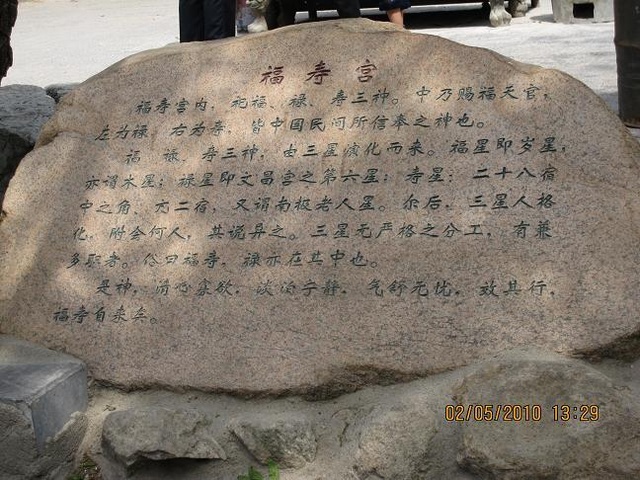 福寿宫
福寿宫内，祀福、禄、寿三神。中乃赐福天官，
左为禄，右为寿，皆中国民间所信奉之神也。
福、禄、寿三神，由三星演化而来。福星即岁星，
亦谓木星；禄星即文昌宫之第六星；寿星：二十八宿
中之角、亢二宿，又谓南极老人星。尔后，三星人格
化，附会何人，其说异之。三星无严格之分工，有兼
多职者。俗曰福寿，禄亦在其中也。
是神，清心寡欲，淡泊宁静，气舒无忧，效其行，
福寿自来矣。
02/05/2010 13:29